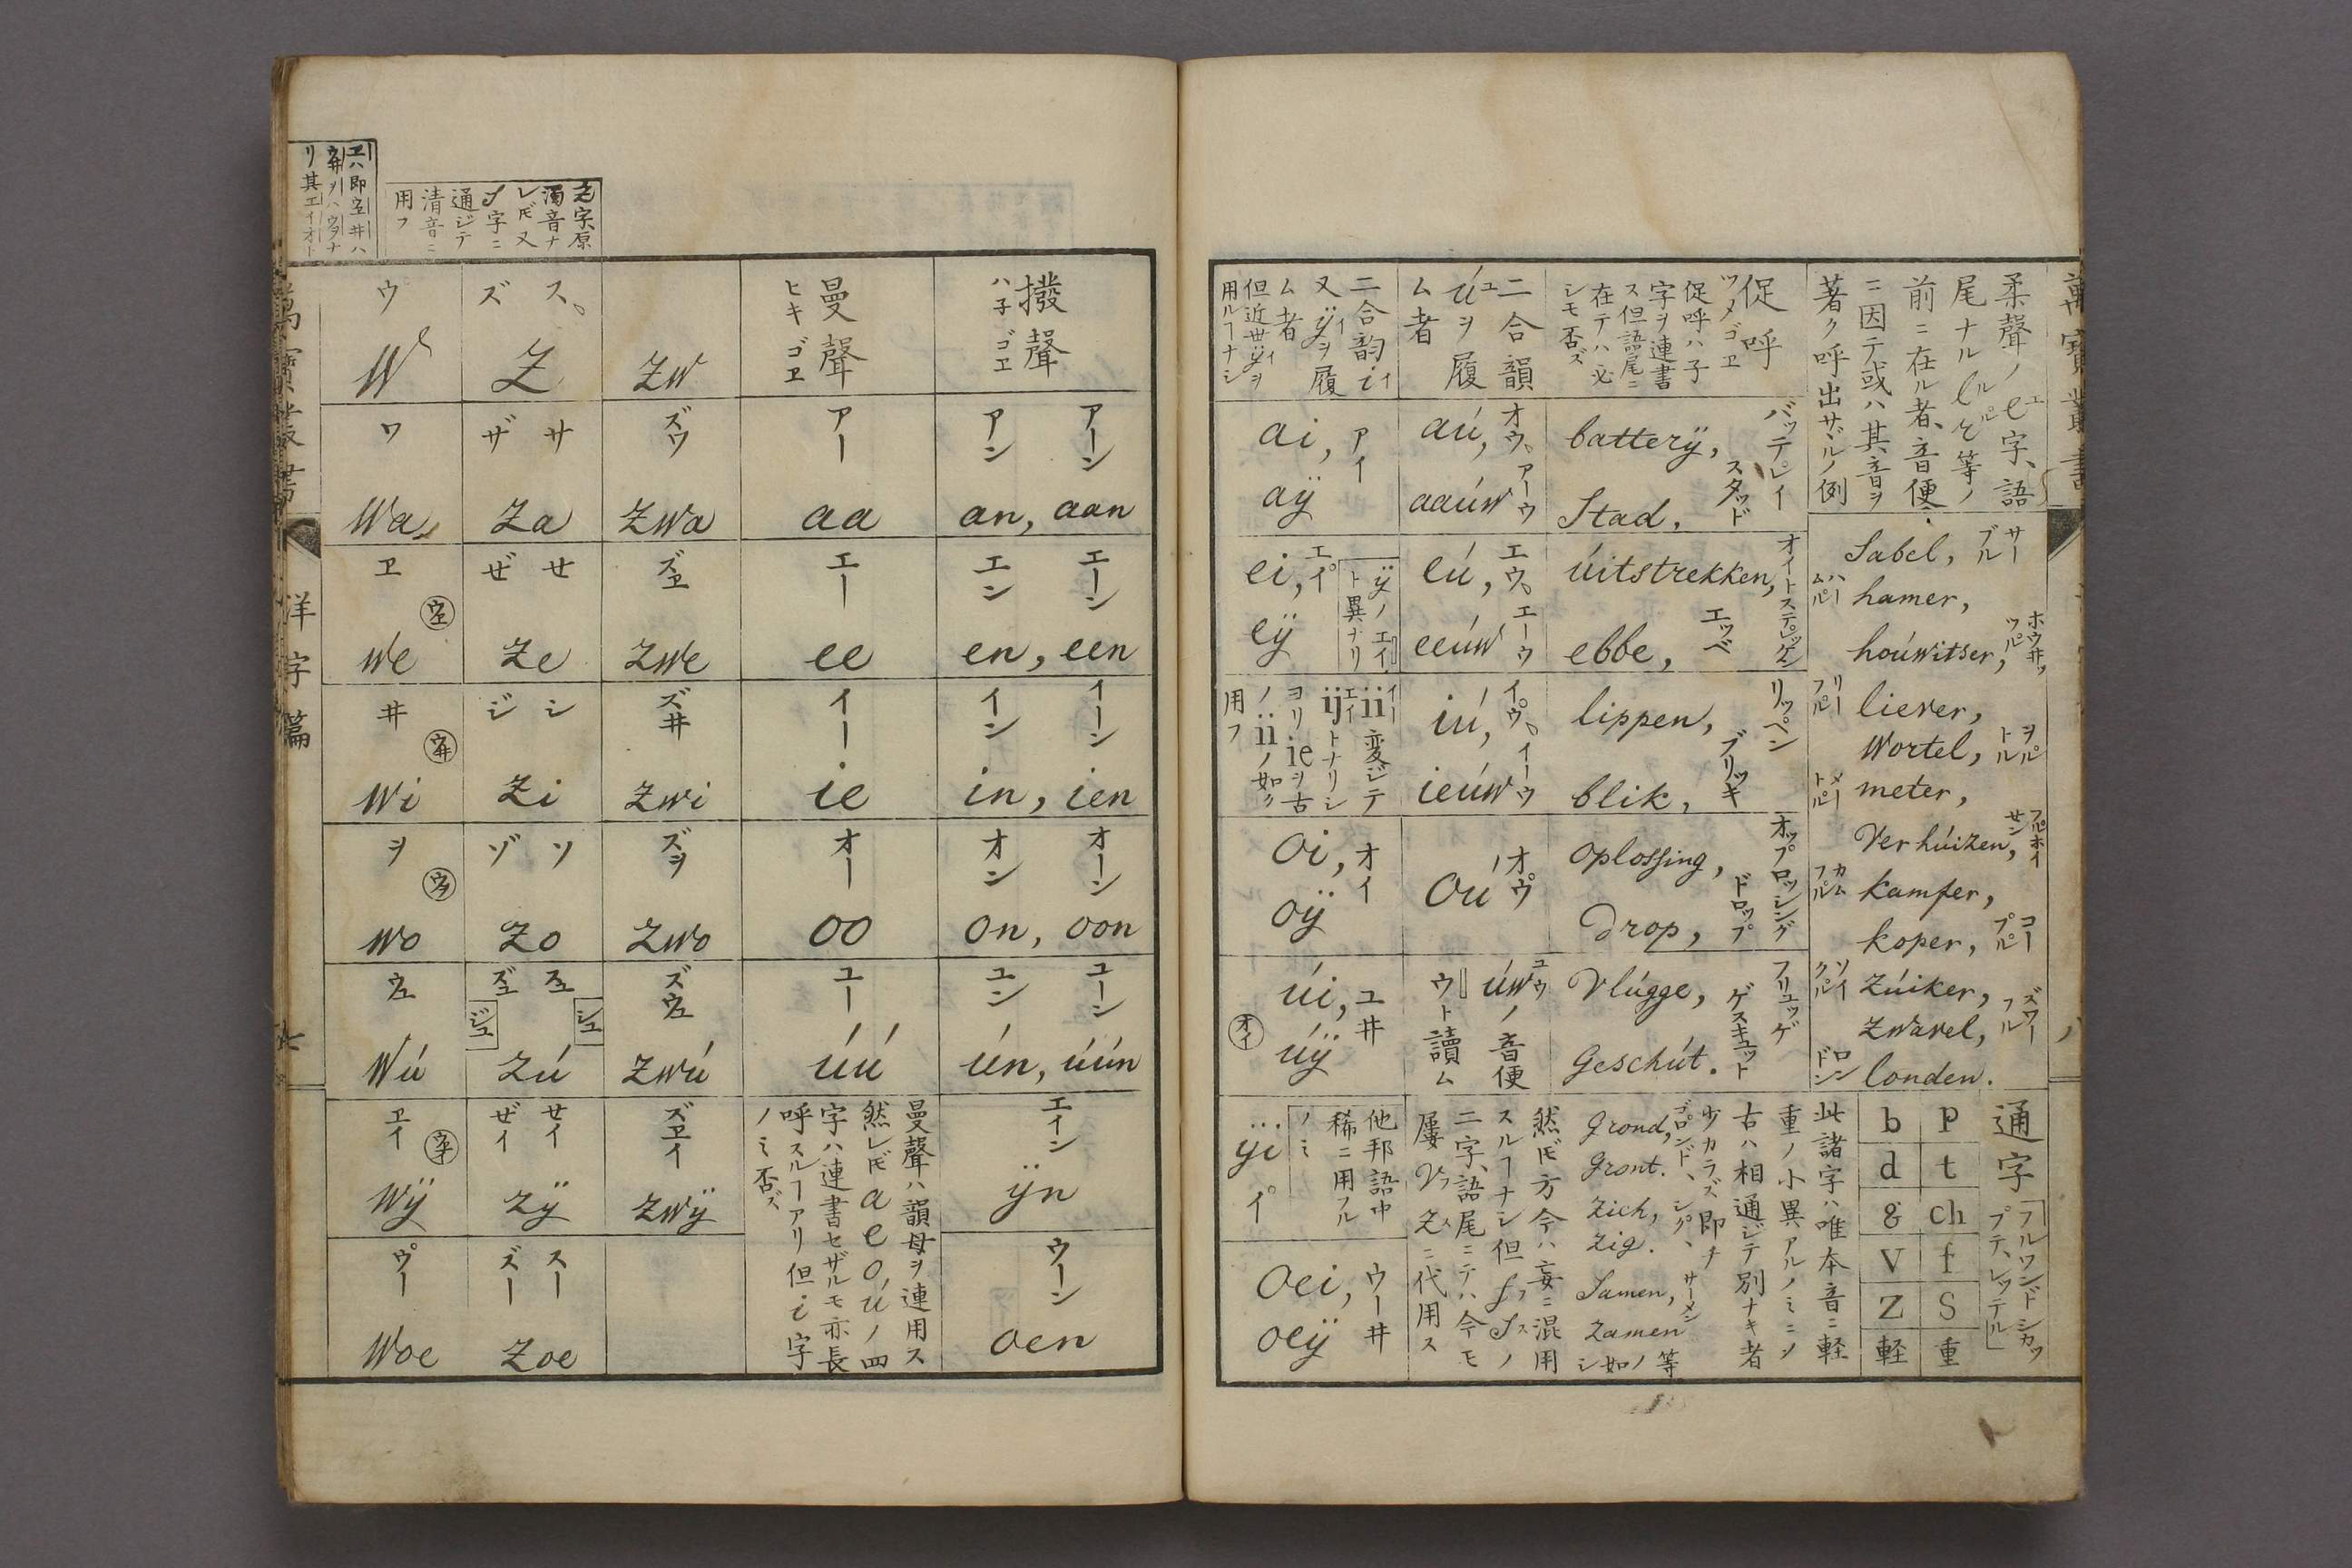 萬寶叢書
洋字篇
七
ヱハ即ウェ井ハ
ウ井ヲハウヲナ
リ其エイオト
Z字原
濁音ナ
レ𪜈又
S字ニ
通ジテ
清音ニ
用フ
ウ
W
ワ
wa
ヱ
ウェ
we
井
ウ井
wi
ヲ
ウヲ
wo
ウユ
wú
ヱイ
wÿ
ウー
woe
ズ ス
Z
ザ サ
za
ゼ セ
ze
ジ シ
zi
ゾ ソ
zo
ズユ スユ
ジユ シユ
zú
ゼイ セイ
zÿ
ズー スー
zoe
zw
ズワ
zwa
ズヱ
zwe
ズ井
zwi
ズヲ
zwo
ズウユ
zwú
ズヱイ
zwÿ
曼聲
ヒキゴヱ
アー
aa
エー
ee
イー
ie
オー
oo
ユー
úú
曼聲ハ韻母ヲ連用ス
然レ𪜈a e o ú ノ四
字ハ連書セザルモ亦長
呼スルヿアリ但i字
ノミ否ズ
撥聲
ハ子ゴヱ
アン アーン
an, aan
エン エーン
en, een
イン イーン
in, ien
オン オーン
on, oon
ユン ユーン
ún, úún
エイン
ÿn
ウーン
oen
二合韵 i
又ÿヲ履
ム者
但近世ÿヲ
用ルヿナシ
アイ
ai,
aÿ
エイ
ei,
eÿ
ÿノエイ
ト異ナリ
ii 変ジテ
ij トナリシ
ヨリ ie ヲ古
ノ ii ノ如ク
用フ
オイ
oi,
oÿ
ユ井
úi,
úÿ
オイ
他邦語中
稀ニ用フル
ノミ
ÿi
イ
ウー井
oei,
oeÿ
二合韻
úヲ履
ム者
オウ アーウ
aú,
aaúw
エウ エーウ
eú,
eeúw
イウ イーウ
iú,
ieúw
オウ
oú
úwノ音便
ウト讀ム
促呼
ツメゴヱ
促呼ハ子
字ヲ連書
ス但語尾ニ
在テハ必
シモ否ズ
バッテレイ
batterÿ,
スタッド
Stad,
オイトステレッケン
úitstrekken,
エッベ
ebbe,
リッペン
lippen,
ブリッキ
blik,
オップロッシング
oplossing,
ドロップ
drop,
フリュッゲ
Vlúgge,
ゲスキュット
Geschút.
柔聲ノe字、語
尾ナル l r 等ノ
前ニ在ル者、音便
ニ因テ或ハ其音ヲ
著ク呼出サヾルノ例
サーブル
Sabel,
ハームル
hamer,
ホウ井ッツル
hoúwitser,
リーフル
liever,
ヲルトル
Wortel,
メートル
meter,
フルホイサン
Verhúizen,
カムフル
kamfer,
コープル
koper,
ソイクル
Zúiker,
ズワーフル
Zwavel,
ロンドン
londen.
通字
「フルワンドシカップテ、レッテル」
p t ch f s 重
b d g v z 軽
此諸字ハ唯本音ニ軽
重ノ小異アルノミニシ
古ハ相通ジテ別ナキ者
少カラズ即チ
ゴロンド、シグ、サーメン
Grond,
Gront.
Zich,
Zig.
Samen,
Zamen
等ノ如シ
然𪜈方今ハ妄ニ混用
スルヿナシ但 f s ノ
二字、語尾ニテハ今モ
屢 v z ニ代用ス
萬寶叢書
八